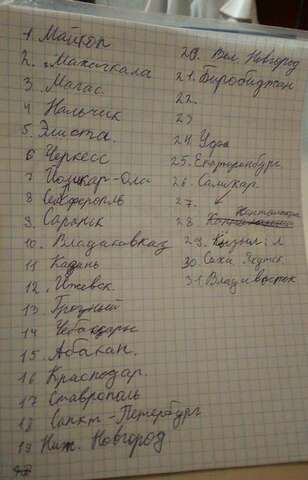 1. Майкоп
2. Махачкала
3. Магас.
4 Нальчик
5. Элиста.
6 Черкесс
7 Йошкар-Ола
8 Симферополь
9. Саранск
10. Владикавказ
11 Казань
12. Ижевск
13. Грозный
14 Чебоксары
15. Абакан.
16 Краснодар.
17 Ставрополь
18 Санкт-Петербург
19 Ниж. Новгород
20. Вел. Новгород
21. Биробиджан
22.
23
24. Уфа
25. Екатеринбург.
26.
27.
28.
29. Кызыл
30 Саха Якутск.
31. Владивосток